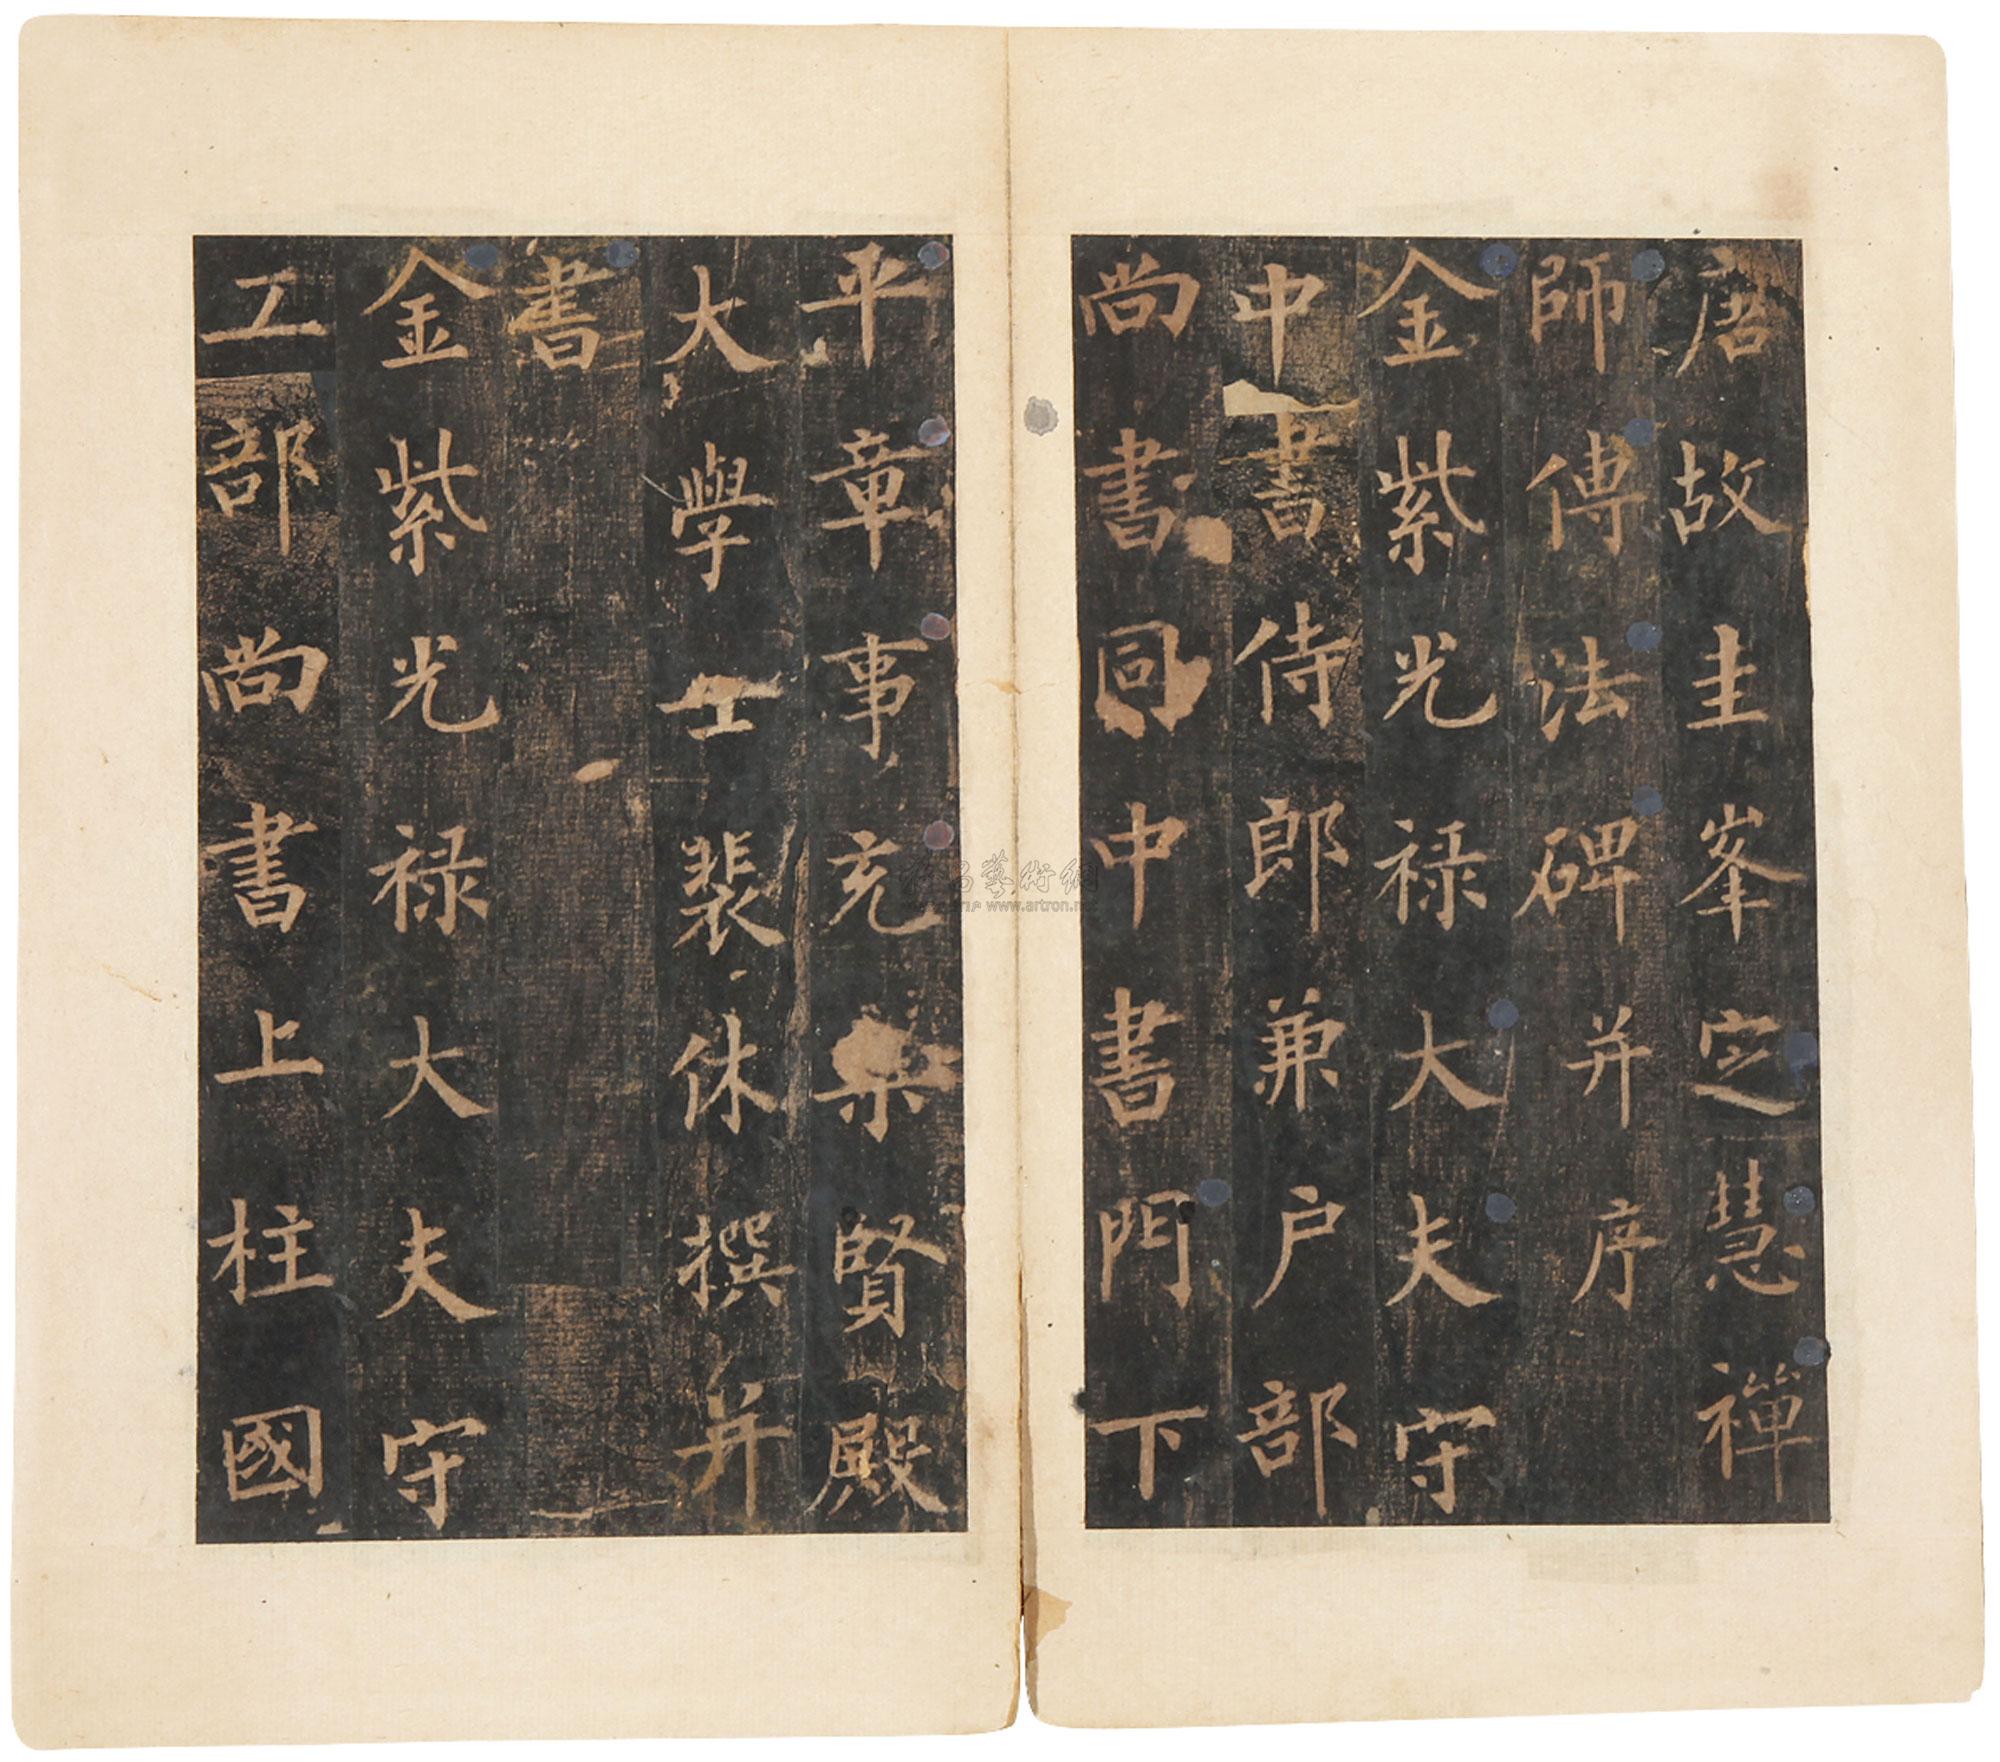 唐故圭峯定慧禪
師傳法碑并序
金紫光禄大夫守
中書侍郎兼户部
尚書同中書門下
平章事充集賢殿
大學士裴休撰并
書
金紫光禄大夫守
工部尚書上柱國
www.artron.net